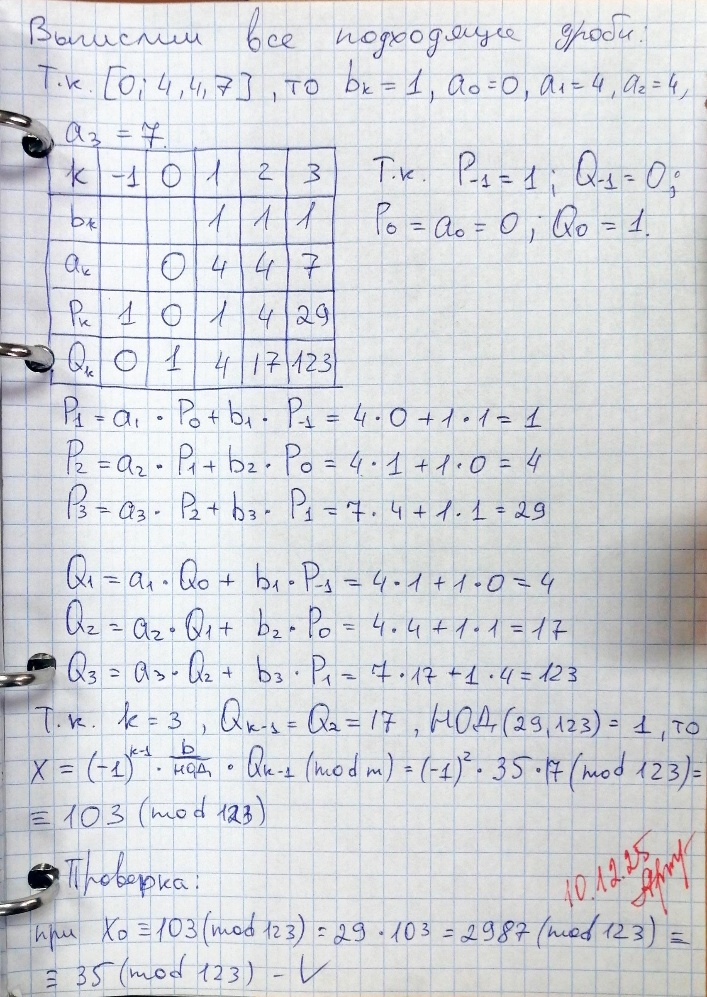 Вычислим все подходящие дроби:
Т.к. [0; 4, 4, 7], то bₖ = 1, a₀ = 0, a₁ = 4, a₂ = 4,
a₃ = 7.
k -1 0 1 2 3
bₖ 1 1 1
aₖ 0 4 4 7
Pₖ 1 0 1 4 29
Qₖ 0 1 4 17 123
Т.к. P₋₁ = 1; Q₋₁ = 0;
P₀ = a₀ = 0; Q₀ = 1.
P₁ = a₁ · P₀ + b₁ · P₋₁ = 4 · 0 + 1 · 1 = 1
P₂ = a₂ · P₁ + b₂ · P₀ = 4 · 1 + 1 · 0 = 4
P₃ = a₃ · P₂ + b₃ · P₁ = 7 · 4 + 1 · 1 = 29
Q₁ = a₁ · Q₀ + b₁ · P₋₁ = 4 · 1 + 1 · 0 = 4
Q₂ = a₂ · Q₁ + b₂ · P₀ = 4 · 4 + 1 · 1 = 17
Q₃ = a₃ · Q₂ + b₃ · P₁ = 7 · 17 + 1 · 4 = 123
Т.к. k = 3, Qₖ₋₁ = Q₂ = 17, НОД(29, 123) = 1, то
X = (-1)ᵏ⁻¹ · b/НОД · Qₖ₋₁ (mod m) = (-1)² · 35 · 17 (mod 123) =
≡ 103 (mod 123)
Проверка:
10.12.25
при X₀ ≡ 103 (mod 123) = 29 · 103 = 2987 (mod 123) ≡
≡ 35 (mod 123) - √